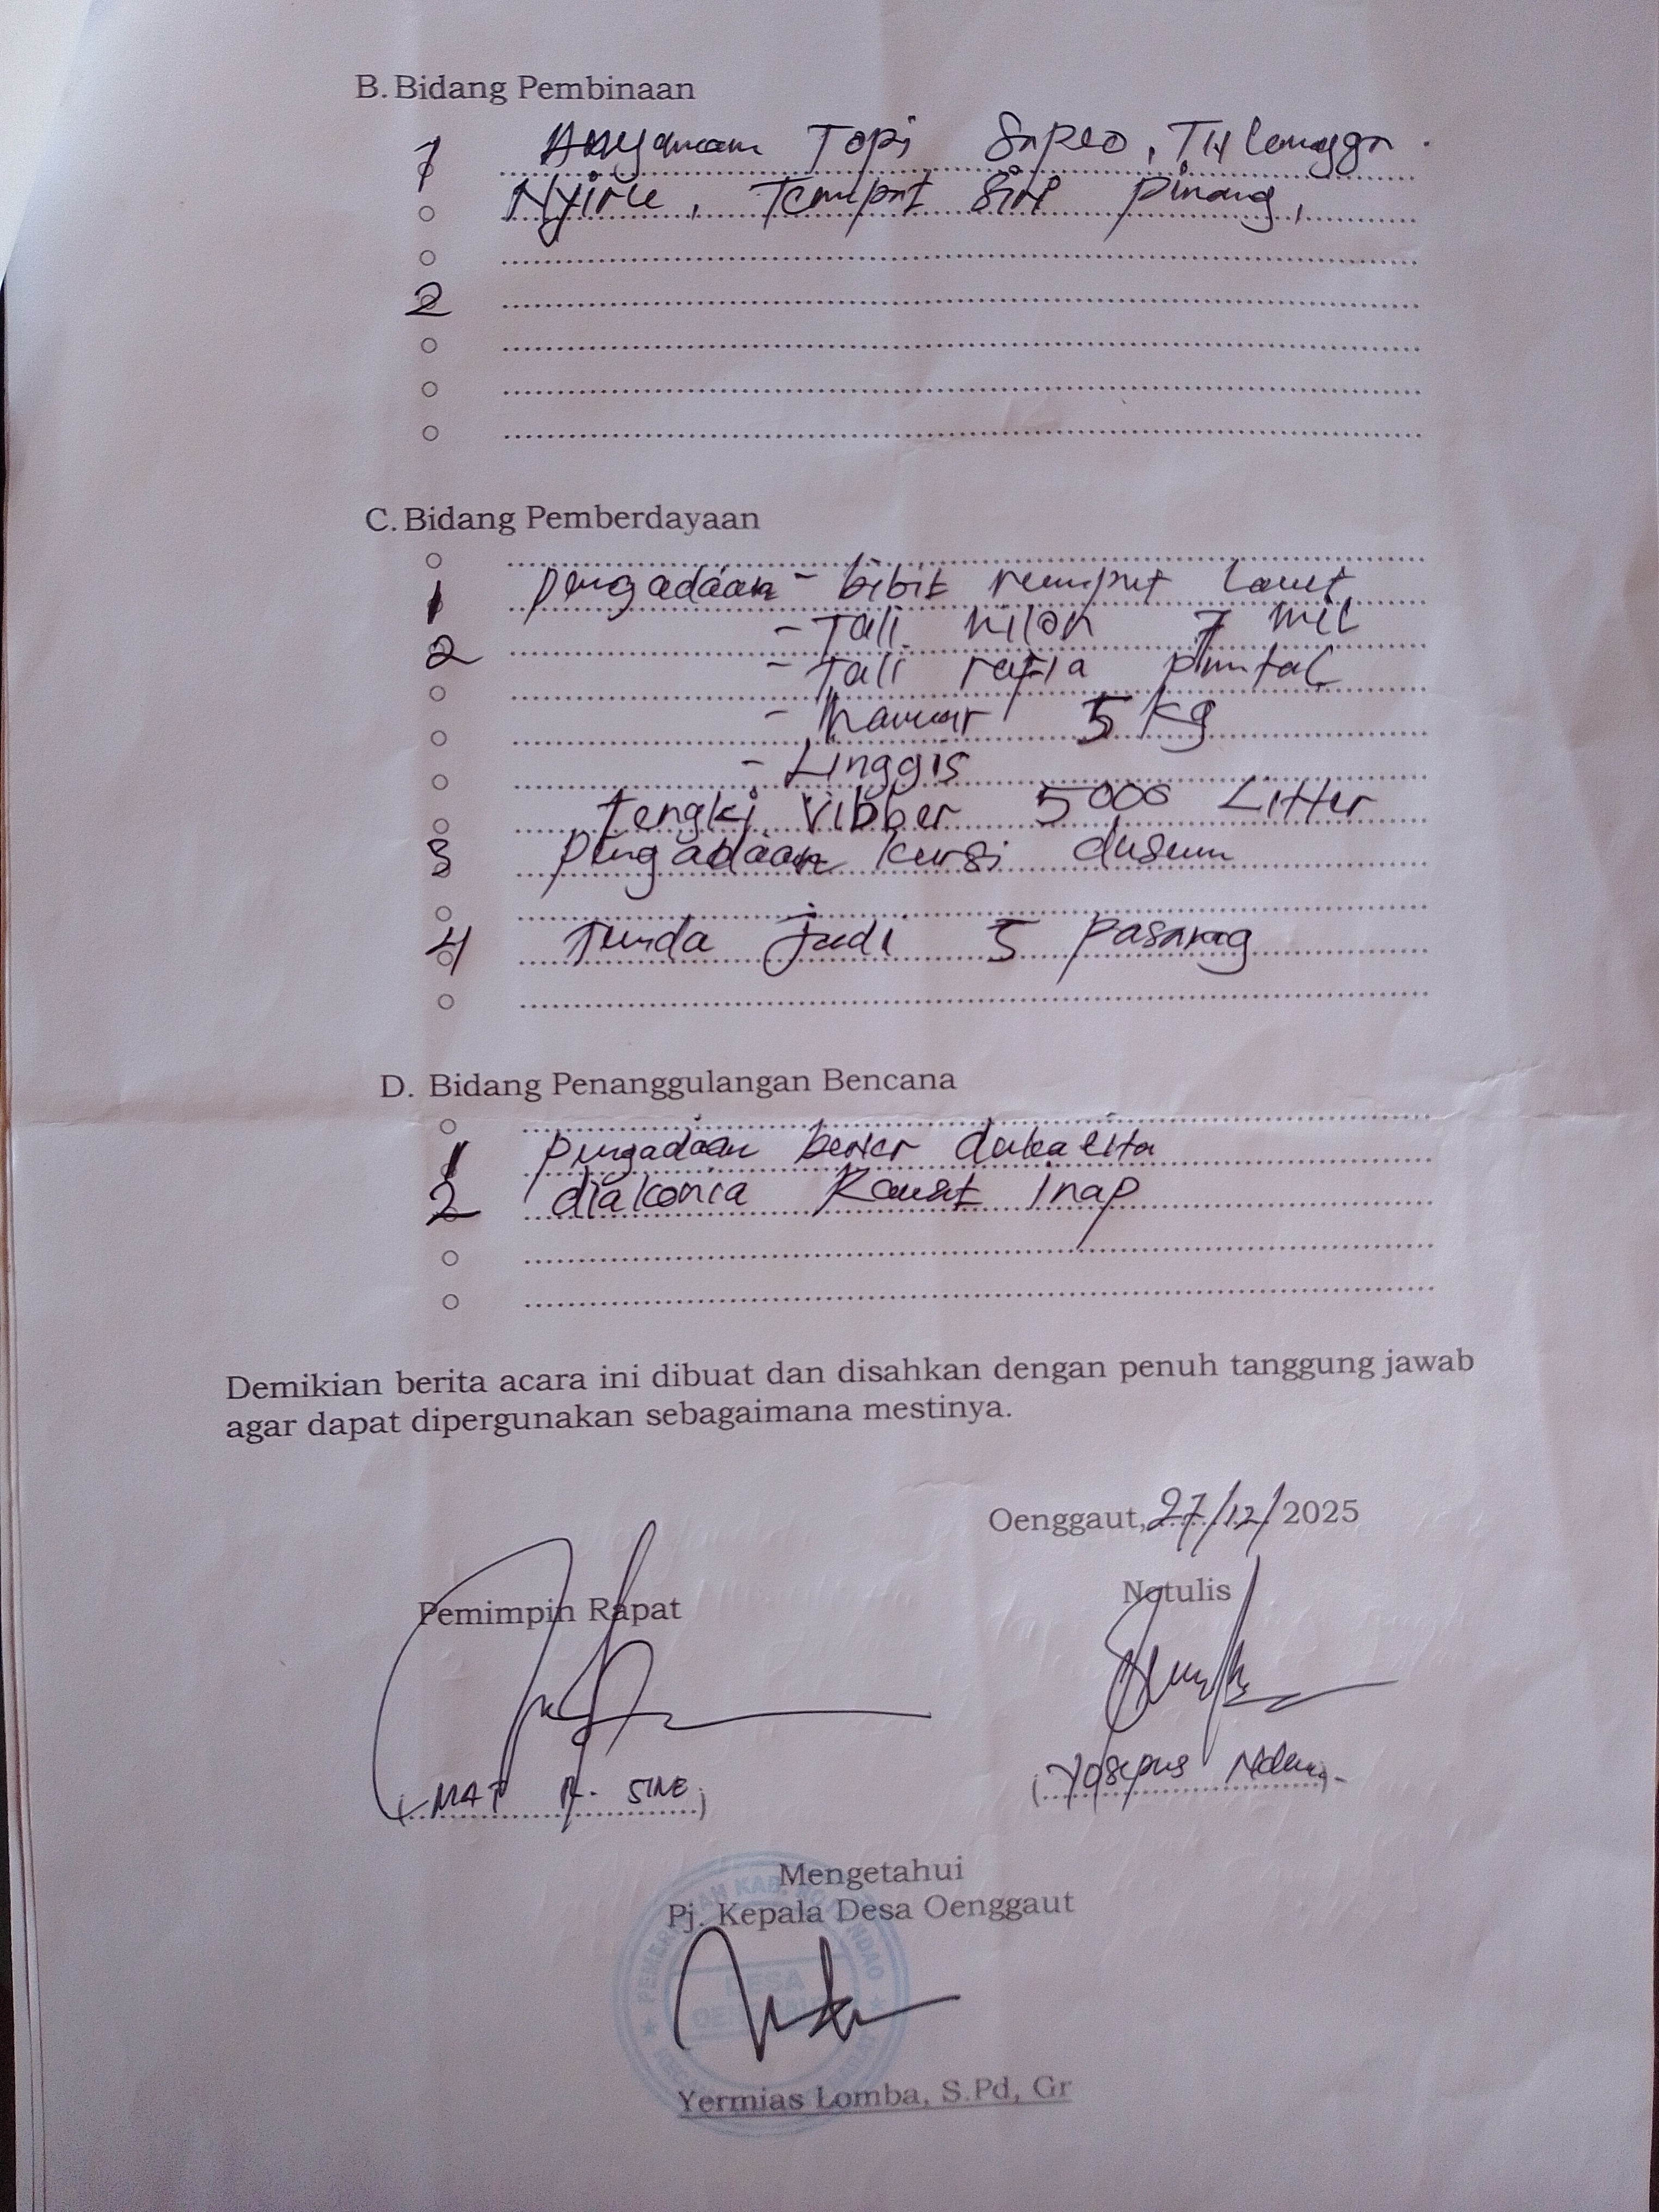 B. Bidang Pembinaan
1 Anyaman Topi , Ti'i langga
Nyiru, Tempat Siri pinang,
2
C. Bidang Pemberdayaan
1 pengadaan - bibit rumput laut
- Tali nilon 7 mil
2 - Tali rafia puntal
- hamar 5 kg
- Linggis
tengki Vibber 5000 Litter
3 pengadaan kursi dusun
4 Tunda judi 5 Pasang
D. Bidang Penanggulangan Bencana
1 pengadaan
2 diakonia Rawat Inap
Demikian berita acara ini dibuat dan disahkan dengan penuh tanggung jawab
agar dapat dipergunakan sebagaimana mestinya.
Oenggaut, 27/12/2025
Pemimpin Rapat
Notulis
(MAT A. SINE)
(Yosepus)
Mengetahui
Pj. Kepala Desa Oenggaut
DESA
Yermias Lomba, S.Pd, Gr